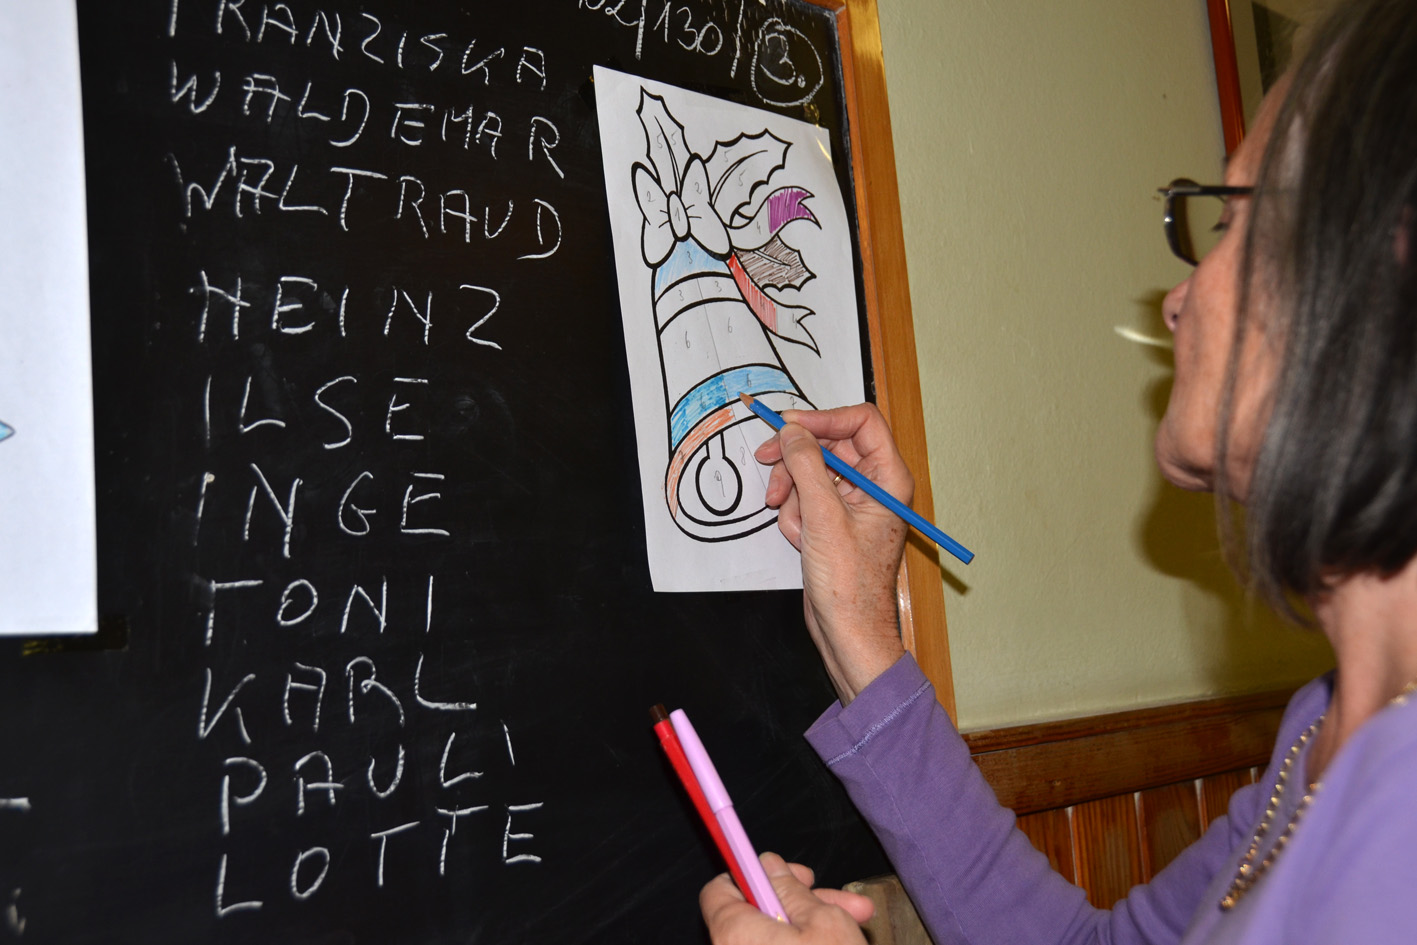 FRANZISKA
WALDEMAR
WALTRAUD
HEINZ
ILSE
INGE
TONI
KARL
PAULI
LOTTE
/130/ 3.
5 5
5
5
2 2
1
4
3
3 3
6 6
8